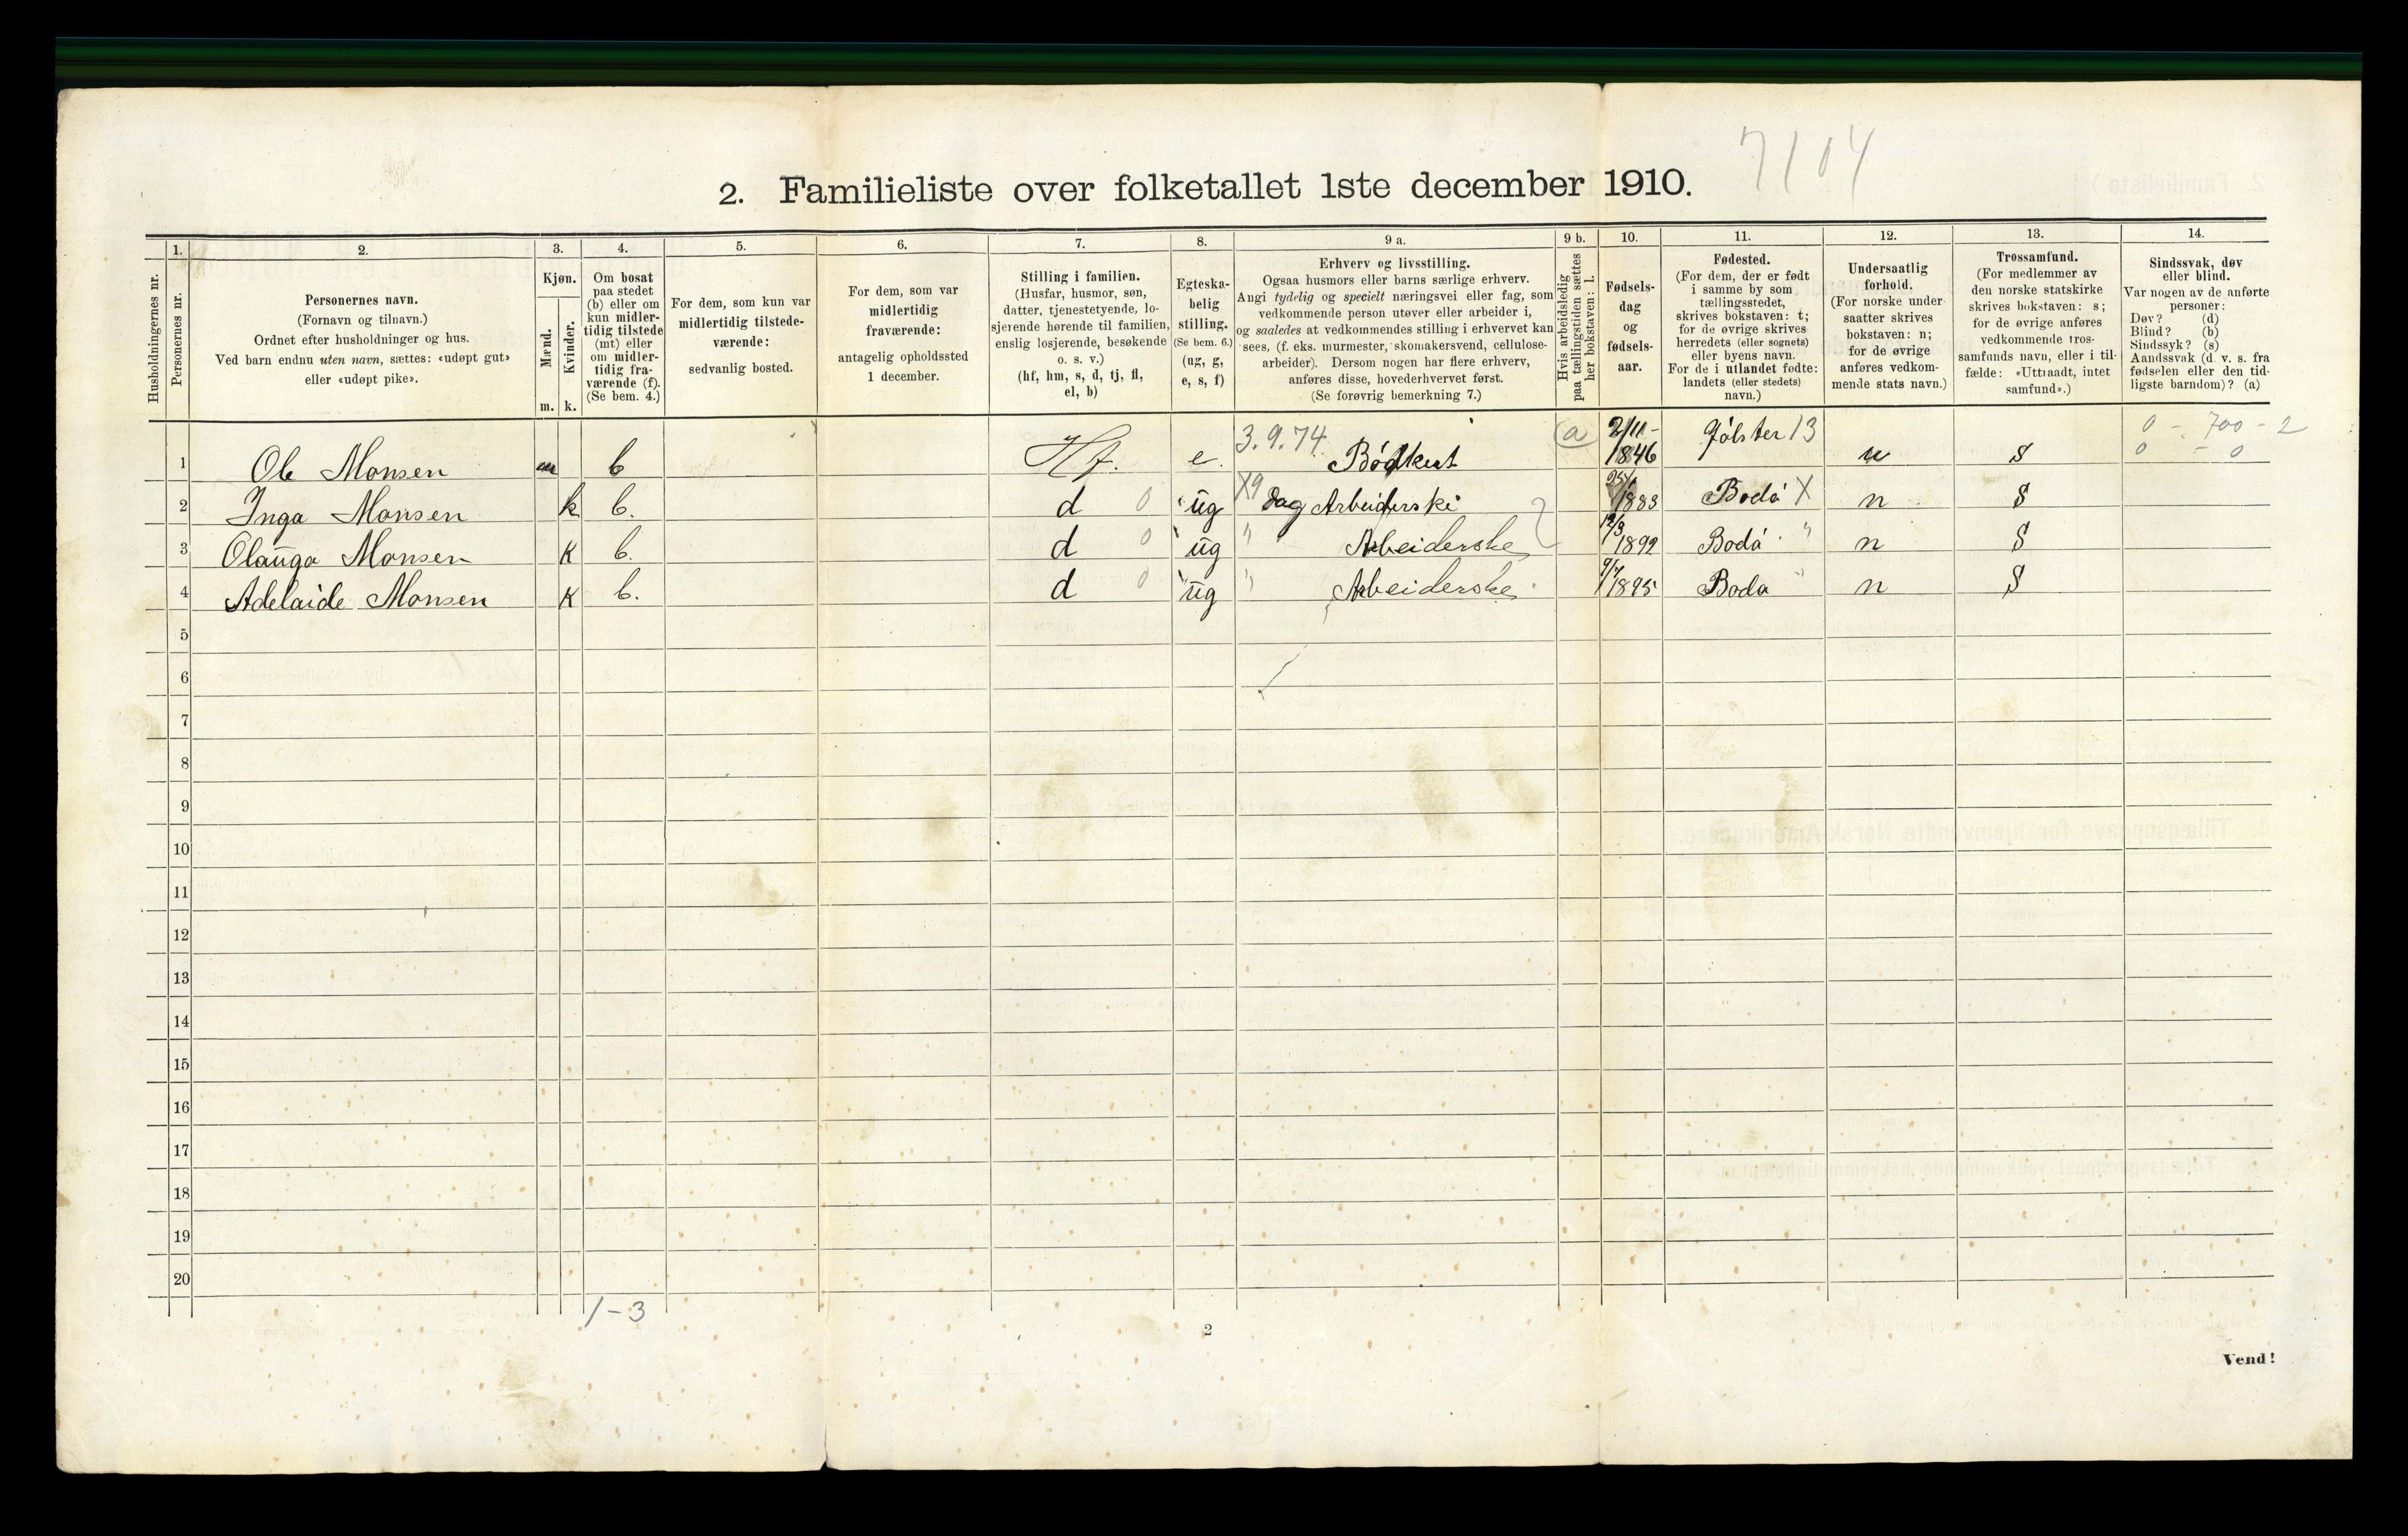 7104
2. Familieliste over folketallet 1ste december 1910.
1. 2. 3. 4. 5. 6. 7. 8. 9 a. 9 b. 10. 11. 12. 13. 14.
Husholdningernes nr.
Personernes nr.
Personernes navn.
(Fornavn og tilnavn.)
Ordnet efter husholdninger og hus.
Ved barn endnu uten navn, sættes: «udøpt gut»
eller «udøpt pike».
Kjøn.
Mænd.
Kvinder.
m. k.
Om bosat
paa stedet
(b) eller om
kun midler-
tidig tilstede
(mt) eller
om midler-
tidig fra-
værende (f).
(Se bem. 4.)
For dem, som kun var
midlertidig tilstede-
værende:
sedvanlig bosted.
For dem, som var
midlertidig
fraværende:
antagelig opholdssted
1 december.
Stilling i familien.
(Husfar, husmor, søn,
datter, tjenestetyende, lo-
sjerende hørende til familien,
enslig losjerende, besøkende
o. s. v.)
(hf, hm, s, d, tj, fl,
el, b)
Egteska-
belig
stilling.
(Se bem. 6.)
(ug, g,
e, s, f)
Erhverv og livsstilling.
Ogsaa husmors eller barns særlige erhverv.
Angi tydelig og specielt næringsvei eller fag, som
vedkommende person utøver eller arbeider i,
og saaledes at vedkommendes stilling i erhvervet kan
sees, (f. eks. murmester, skomakersvend, cellulose-
arbeider). Dersom nogen har flere erhverv,
anføres disse, hovederhvervet først.
(Se forøvrig bemerkning 7.)
Hvis arbeidsledig
paa tællingstiden sættes
her bokstaven: l.
Fødsels-
dag
og
fødsels-
aar.
Fødested.
(For dem, der er født
i samme by som
tællingsstedet,
skrives bokstaven: t;
for de øvrige skrives
herredets (eller sognets)
eller byens navn.
For de i utlandet fødte:
landets (eller stedets)
navn.)
Undersaatlig
forhold.
(For norske under-
saatter skrives
bokstaven: n;
for de øvrige
anføres vedkom-
mende stats navn.)
Trossamfund.
(For medlemmer av
den norske statskirke
skrives bokstaven: s;
for de øvrige anføres
vedkommende tros-
samfunds navn, eller i til-
fælde: «Uttraadt, intet
samfund».)
Sindssvak, døv
eller blind.
Var nogen av de anførte
personer:
Døv? (d)
Blind? (b)
Sindssyk? (s)
Aandssvak (d. v. s. fra
fødselen eller den tid-
ligste barndom)? (a)
3.9.74. (a) 2/11- Jølster 13 0 - 700 - 2
1 Ole Monsen m b Hf. e. Bødker 1846 n s 0 - 0
2 Inga Monsen k b. d 0 ug X9 Dag Arbeiderske 1883 Bodø X n s
3 Olauga Monsen K b. d 0 ug " Arbeiderske 12/3 1892 Bodø " n s
4 Adelaide Monsen K b. d 0 ug " Arbeiderske 9/7 1895 Bodø " n s
5
6
7
8
9
10
11
12
13
14
15
16
17
18
19
20
1-3
2
Vend!